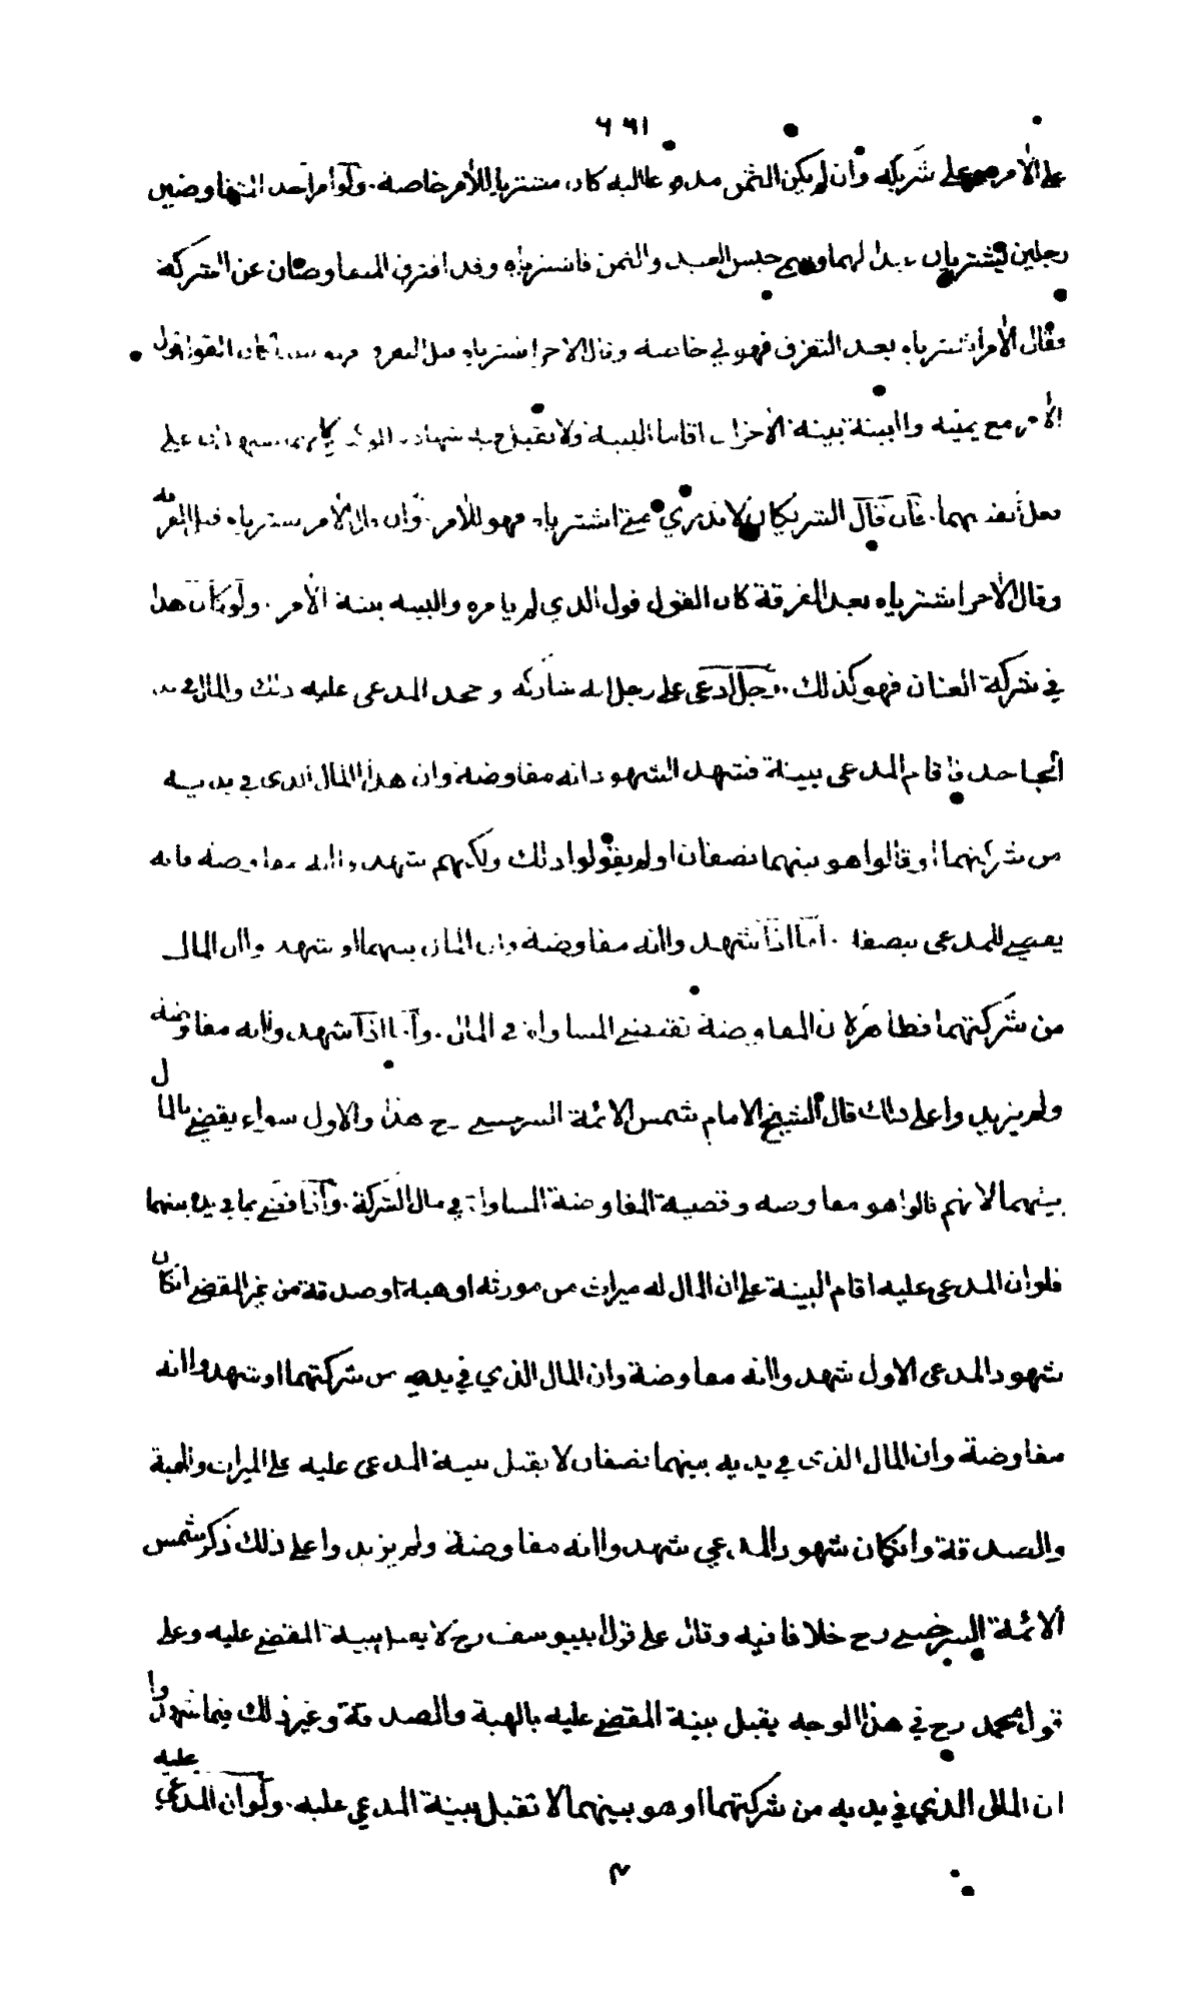 ٦٦١
على الآمر وعلى شريكه وان لم يكن الثمن كان مشتريا للآمر خاصة. ولو امر احد المتفاوضين
رجلين يشتريان عبدا لهما وسمى جنس العبد والثمن فاشترياه وقد افترق المتفاوضان عن الشركة
فقال الآمر اشترياه بعد التفرق فهو لي خاصة وقال الآخر اشترياه قبل التفرق فهو بيننا كان القول قول
الآمر مع يمينه والبينة بينة الآخر ان اقاما البينة ولا تقبل فيه شهادة على
فعل أنفسهما. فان قال الشريكان لا ندري متى اشترياه فهو للآمر. وان قال الآمر اشترياه قبل الفرقة
وقال الآخر اشترياه بعد الفرقة كان القول قول الذي لم يامره والبينة بينة الآمر. ولو كان هذا
في شركة العنان فهو كذلك.. رجل ادعى على رجل انه شاركه وجحد المدعى عليه ذلك والمال في يد
الجاحد فاقام المدعى ببينة فشهد الشهود انه مفاوضة وان هذا المال الذي في يديه
من شركتهما او قالوا هو بينهما نصفان او لم يقولوا ذلك ولكنهم شهدوا انه مفاوضة فانه
يقضى للمدعى بنصفها. اما اذا شهدوا انه مفاوضة وان المال بينهما او شهدوا ان المال
من شركتهما فظاهر لان المفاوضة تقتضي المساواة في المال. واما اذا شهدوا انه مفاوضة
ولم يزيدوا على ذلك قال الشيخ الامام شمس الائمة السرخسي رح هذا والاول سواء يقضى بالمال
بينهما لانهم قالوا هو مفاوضة وقضية المفاوضة المساواة في مال الشركة. واذا قضى بما في يده بينهما
فلو ان المدعى عليه اقام البينة على ان المال له ميراث من مورثه او هبة او صدقة من غير المقضى ان كان
شهود المدعى الاول شهدوا انه مفاوضة وان المال الذي في يديه من شركتهما او شهدوا انه
مفاوضة وان المال الذي في يديه بينهما نصفان لا يقبل بينة المدعى عليه على الميراث والهبة
والصدقة وان كان شهود المدعي شهدوا انه مفاوضة ولم يزيدوا على ذلك ذكر شمس
الائمة السرخسي رح خلافا فيه وقال على قول ابي يوسف رح لا يقبل بينة المقضي عليه وعلى
قول محمد رح في هذا الوجه يقبل بينة المقضي عليه بالهبة والصدقة وغير ذلك فيما شهدوا
ان المال الذي في يديه من شركتهما او هو بينهما لا تقبل بينة المدعي عليه. ولو ان المدعي عليه